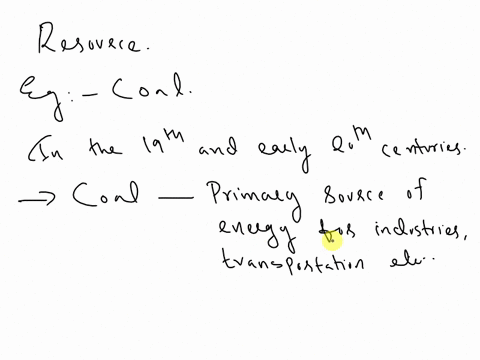 Resource.
Eg:- Coal.
In the 19th and early 20th centuries.
→ Coal — Primary source of
energy for industries,
transportation etc..